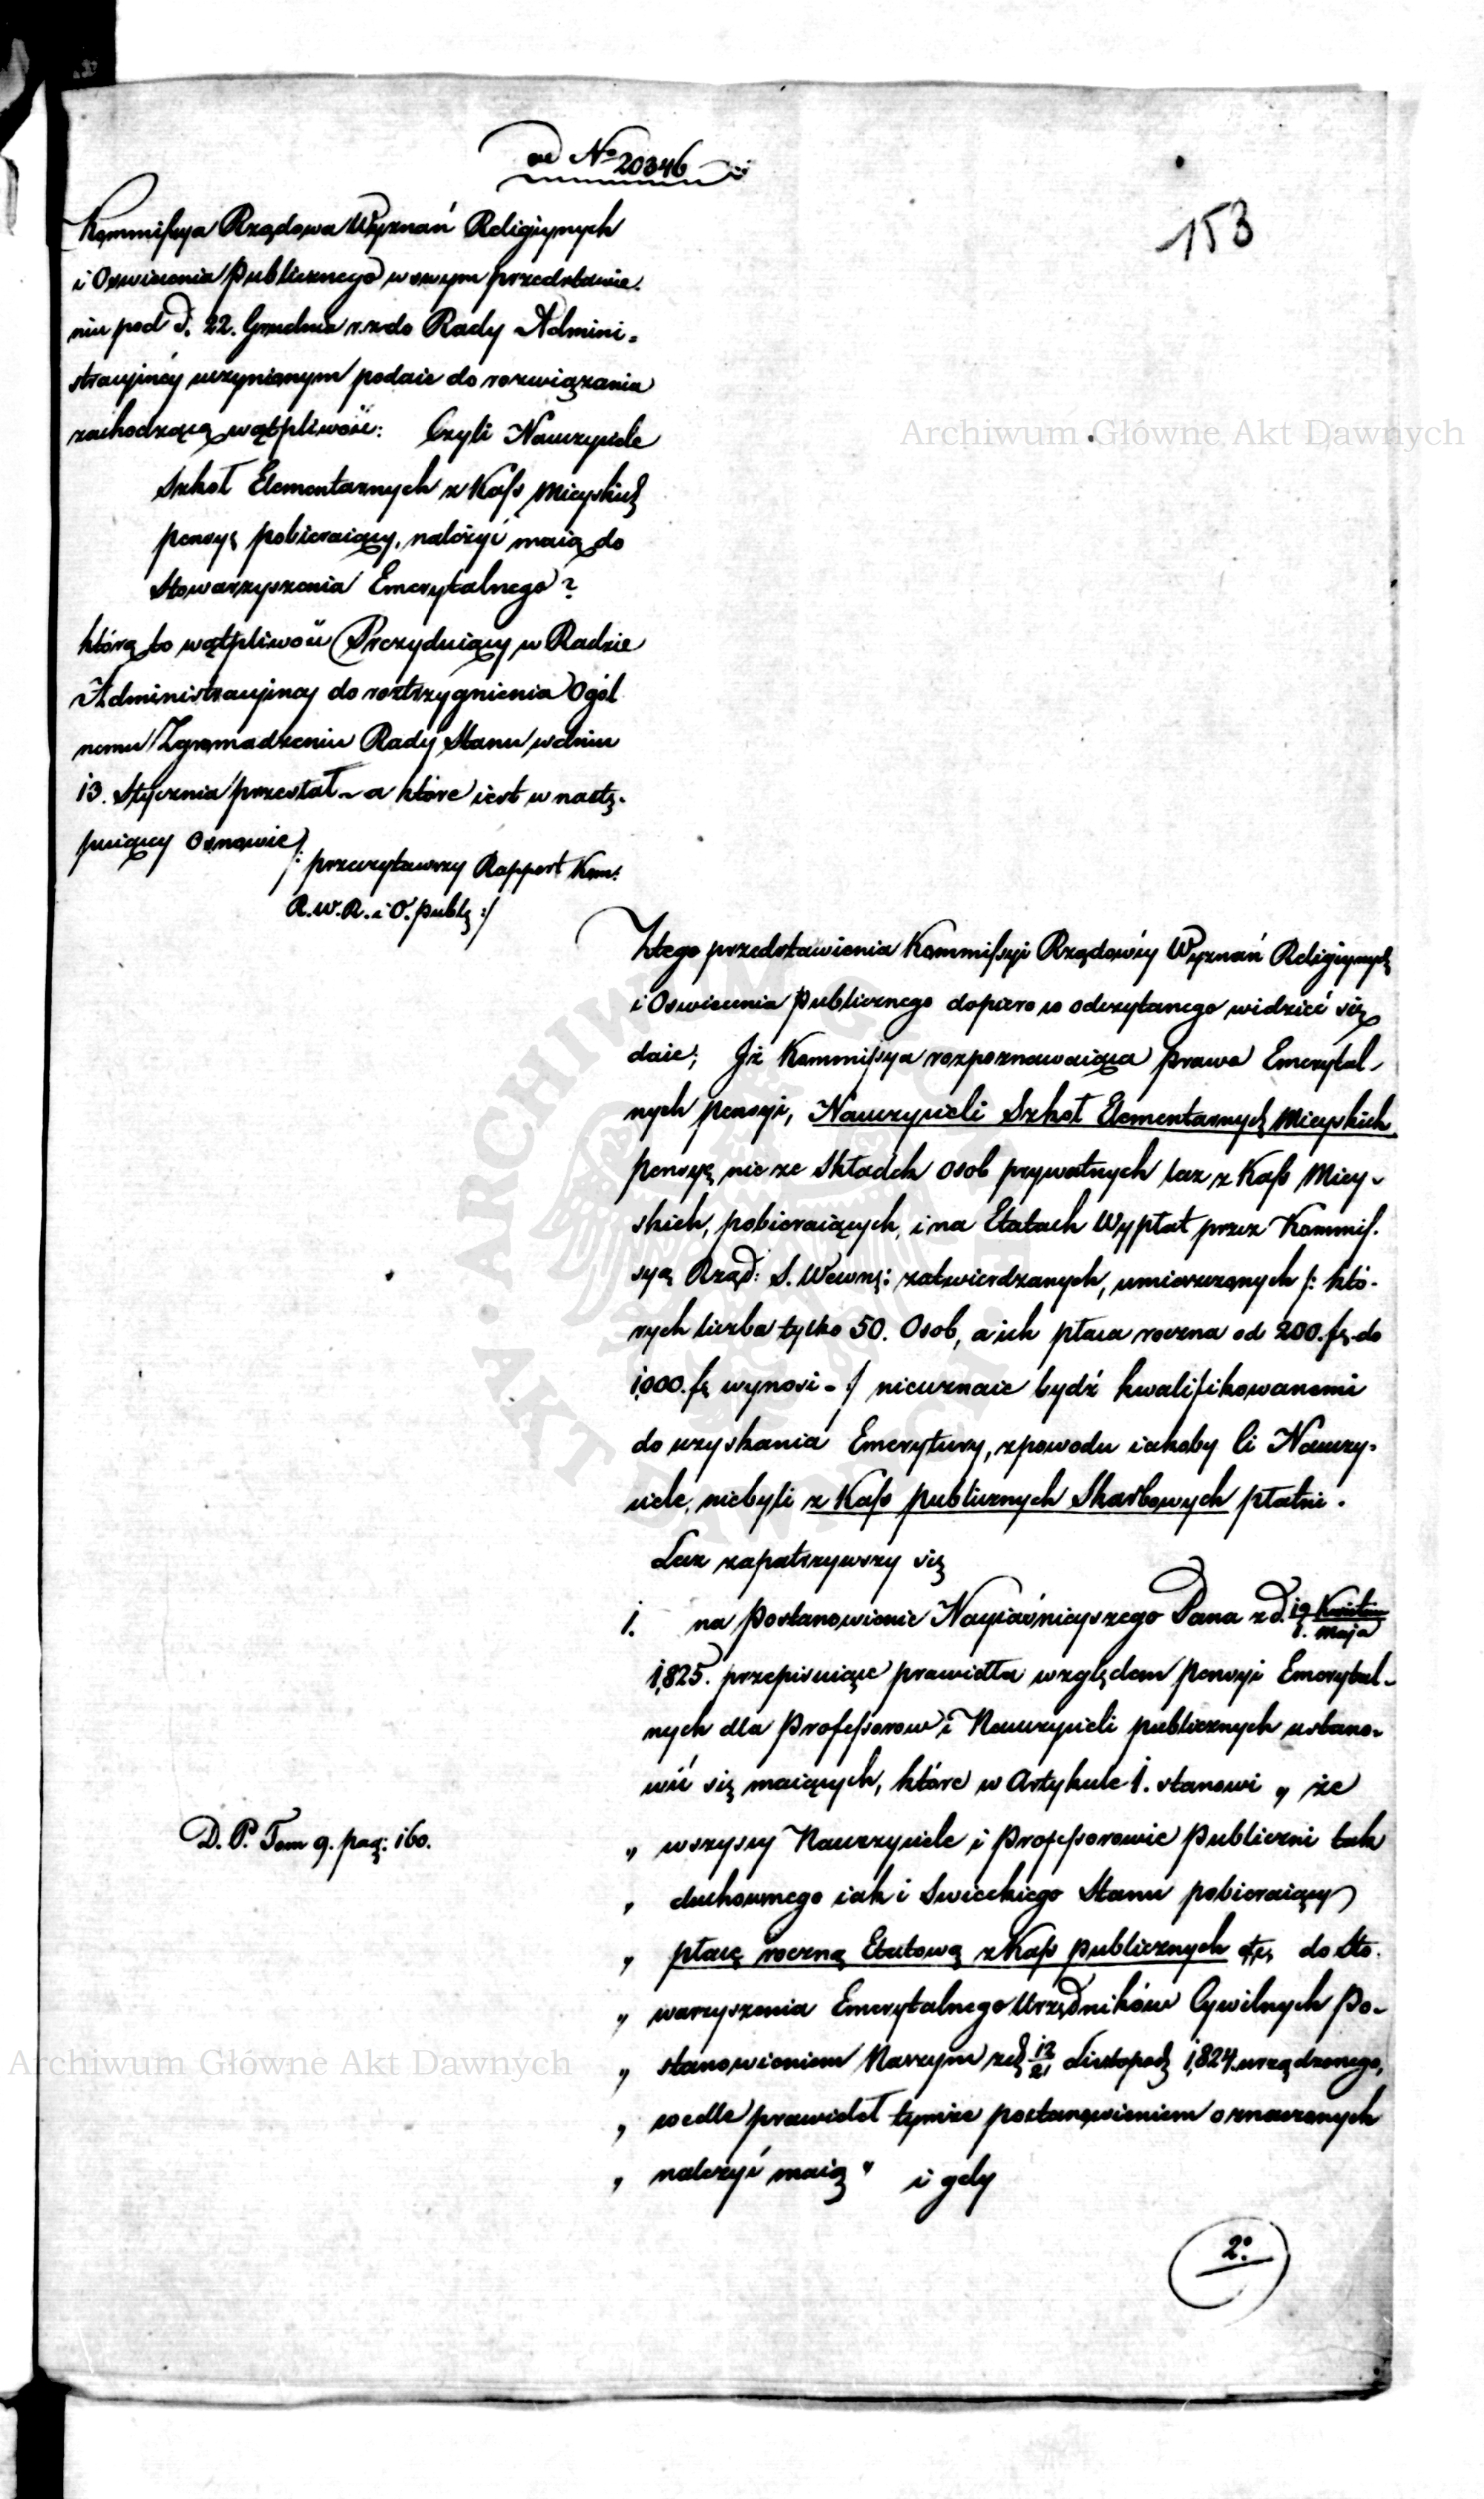 ad No 20346
153
Kommissya Rządowa Wyznań Religiynych
i Oswiecenia Publicznego w swym przedstawie-
niu pod d. 22. Grudnia r. z do Rady Admini=
stracyinéy uczynionym podaie do rozwiązania
zachodzącą wątpliwość: Czyli Nauczyciele
Szkoł Elementarnych z Kass Mieyskich
pensyę pobieraiący, należyć maią do
Stowarzyszenia Emerytalnego?
którą to wątpliwość Prezyduiący w Radzie
Administracyiney do roztrzygnienia Ogól
nemu Zgromadzeniu Rady Stanu w dniu
13. Stycznia przesłał – a które iest w nastę-
puiącey Osnowie
/: przeczytawszy Rapport Kom:
R. W. R. i O. Publ. :/
Z tego przedstawienia Kommissyi Rządowéy Wyznań Religiynych
i Oswiecenia Publicznego dopiero co odczytanego widzieć się
daie; Iż Kommissya rozpoznawaiąca prawa Emerytal-
nych pensyi, Nauczycieli Szkoł Elementarnych Mieyskich
pensyę nie ze Składek osob prywatnych lecz z Kass Miey-
skich, pobieraiących, i na Etatach Wypłat przez Kommis-
syą Rząd: S. Wewnę: zatwierdzanych, umieszczonych /: któ-
rych liczba tylko 50. Osob, a ich płaca roczna od 200. do
1,000. wynosi – :/ nieuznaie bydź kwalifikowanemi
do uzyskania Emerytury, z powodu iakoby Ci Nauczy-
ciele, niebyli z Kass publicznych Skarbowych płatni.
Lecz zapatrzywszy się
1. na Postanowienie Nayiaśnieyszego Pana z d. 19 Kwietnia / 1. Maja
1,825. przepisuiące prawidła względem Pensyi Emerytal-
nych dla Professorow i Nauczycieli publicznych ustano-
wić się maiących, które w Artykule 1. stanowi „ że
„ wszyscy Nauczyciele i Professorowie Publiczni tak
D. P. Tom 9. pag: 160.
„ duchownego iak i Swieckiego Stanu pobieraiący
„ płacę roczną Etatową z Kass publicznych do Sto-
„ warzyszenia Emerytalnego Urzędników Cywilnych Po-
„ stanowieniem Naszym z d. 12/21 Listopad 1,824. urządzonego,
„ wedle prawideł tymże postanowieniem oznaczonych
„ należyć maią " i gdy
2o
Archiwum Główne Akt Dawnych
Archiwum Główne Akt Dawnych